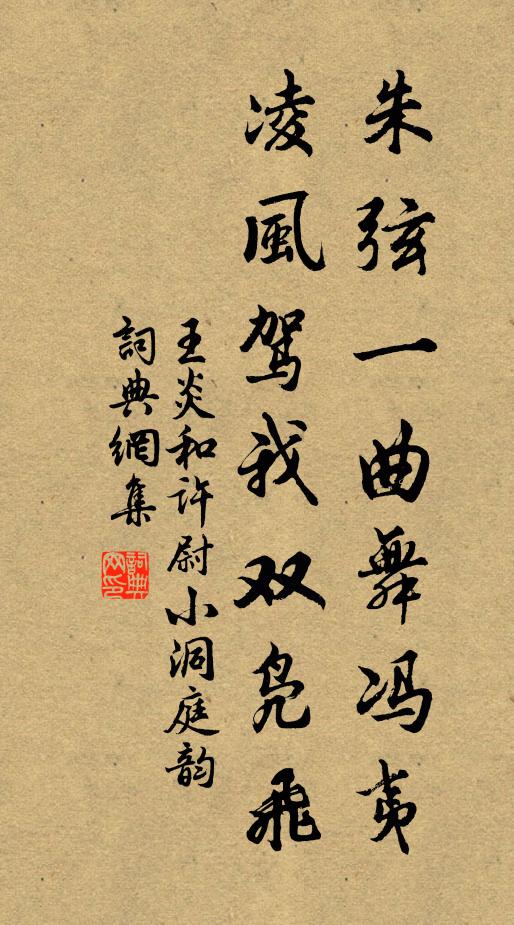 朱弦一曲舞冯夷
凌風驾我双凫飛
王炎和许尉小洞庭韵
詞典網集
詞典
网印